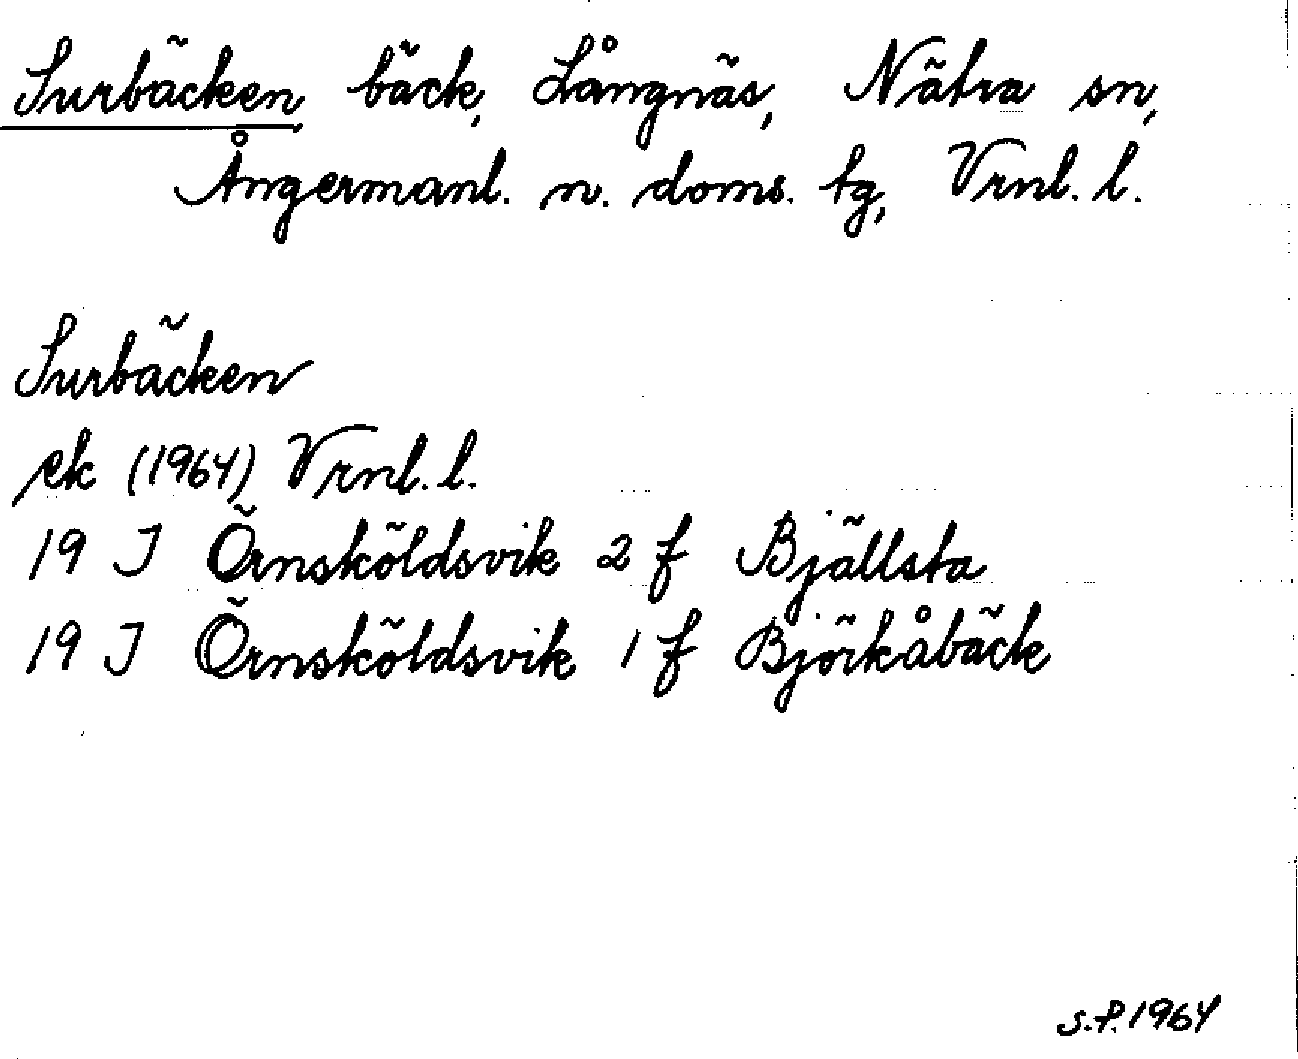 Surbäcken bäck, Långnäs, Nätra sn,
Ångermanl. n. doms. tg, Vrnl. l.
Surbäcken
ek (1964) Vrnl. l.
19 J Örnsköldsvik 2 f Bjällsta
19 J Örnsköldsvik 1 f Björkåbäck
S.P. 1964